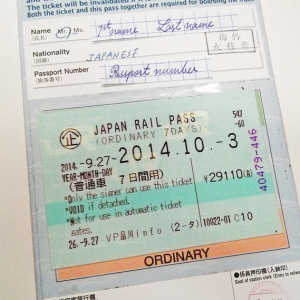 The ticket will be invalidated if
Both the ticket and this pass together are required for boarding the
Name
(氏名)
Mr. Ms. 1st name Last name
Nationality
(国籍)
JAPANESE
Passport Number
(旅券番号)
Passport number
JAPAN RAIL PASS
(ORDINARY 7DAYS)
547
-60
2014.-9.-27-2014.10.-3
YEAR-MONTH-DAY
(普通車 7日間用)
*Only the signer can use this ticket
¥29110(A)
*VOID if detached.
*Not for use in automatic
gates.
(2-タ)10022-01
26.-9.27 VP品川info
40479-446
ORDINARY